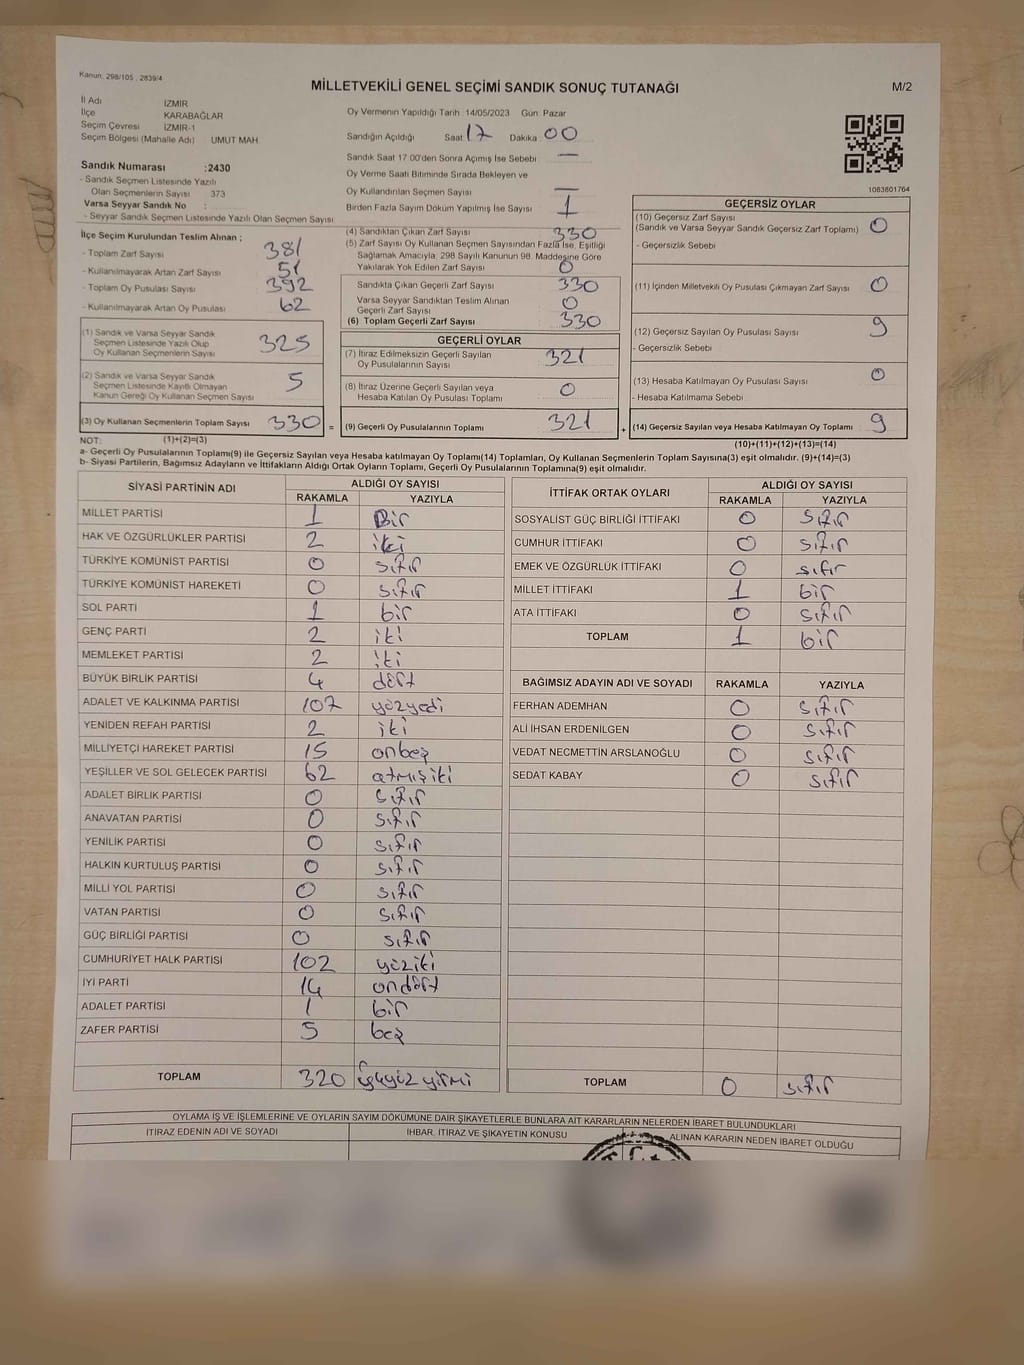 Kanun: 298/105 , 2839/4
MİLLETVEKİLİ GENEL SEÇİMİ SANDIK SONUÇ TUTANAĞI
M/2
İl Adı İZMİR
İlçe KARABAĞLAR
Seçim Çevresi İZMİR-1
Seçim Bölgesi (Mahalle Adı) UMUT MAH
Sandık Numarası :2430
- Sandık Seçmen Listesinde Yazılı
Olan Seçmenlerin Sayısı 373
Varsa Seyyar Sandık No :
- Seyyar Sandık Seçmen Listesinde Yazılı Olan Seçmen Sayısı
Oy Vermenin Yapıldığı Tarih 14/05/2023 Gün: Pazar
Sandığın Açıldığı Saat 17 Dakika 00
Sandık Saat 17.00'den Sonra Açımış İse Sebebi —
Oy Verme Saati Bitiminde Sırada Bekleyen ve
Oy Kullandırılan Seçmen Sayısı —
Birden Fazla Sayım Döküm Yapılmış İse Sayısı 1
1083801764
İlçe Seçim Kurulundan Teslim Alınan ;
- Toplam Zarf Sayısı 381
- Kullanılmayarak Artan Zarf Sayısı 51
- Toplam Oy Pusulası Sayısı 392
- Kullanılmayarak Artan Oy Pusulası 62
(1) Sandık ve Varsa Seyyar Sandık
Seçmen Listesinde Yazılı Olup
Oy Kullanan Seçmenlerin Sayısı 325
(2) Sandık ve Varsa Seyyar Sandık
Seçmen Listesinde Kayıtlı Olmayan
Kanun Gereği Oy Kullanan Seçmen Sayısı 5
(3) Oy Kullanan Seçmenlerin Toplam Sayısı 330 =
(4) Sandıktan Çıkan Zarf Sayısı 330
(5) Zarf Sayısı Oy Kullanan Seçmen Sayısından Fazla İse, Eşitliği
Sağlamak Amacıyla, 298 Sayılı Kanunun 98. Maddesine Göre
Yakılarak Yok Edilen Zarf Sayısı 0
Sandıkta Çıkan Geçerli Zarf Sayısı 330
Varsa Seyyar Sandıktan Teslim Alınan
Geçerli Zarf Sayısı 0
(6) Toplam Geçerli Zarf Sayısı 330
GEÇERLİ OYLAR
(7) İtiraz Edilmeksizin Geçerli Sayılan
Oy Pusulalarının Sayısı 321
(8) İtiraz Üzerine Geçerli Sayılan veya
Hesaba Katılan Oy Pusulası Toplamı 0
(9) Geçerli Oy Pusulalarının Toplamı 321 +
GEÇERSİZ OYLAR
(10) Geçersiz Zarf Sayısı
(Sandık ve Varsa Seyyar Sandık Geçersiz Zarf Toplamı) 0
- Geçersizlik Sebebi
(11) İçinden Milletvekili Oy Pusulası Çıkmayan Zarf Sayısı 0
(12) Geçersiz Sayılan Oy Pusulası Sayısı 9
- Geçersizlik Sebebi
(13) Hesaba Katılmayan Oy Pusulası Sayısı 0
- Hesaba Katılmama Sebebi
(14) Geçersiz Sayılan veya Hesaba Katılmayan Oy Toplamı 9
NOT: (1)+(2)=(3) (10)+(11)+(12)+(13)=(14)
a- Geçerli Oy Pusulalarının Toplamı(9) ile Geçersiz Sayılan veya Hesaba katılmayan Oy Toplamı(14) Toplamları, Oy Kullanan Seçmenlerin Toplam Sayısına(3) eşit olmalıdır. (9)+(14)=(3)
b- Siyasi Partilerin, Bağımsız Adayların ve İttifakların Aldığı Ortak Oyların Toplamı, Geçerli Oy Pusulalarının Toplamına(9) eşit olmalıdır.
SİYASİ PARTİNİN ADI ALDIĞI OY SAYISI
RAKAMLA YAZIYLA
MİLLET PARTİSİ 1 Bir
HAK VE ÖZGÜRLÜKLER PARTİSİ 2 iki
TÜRKİYE KOMÜNİST PARTİSİ 0 sıfır
TÜRKİYE KOMÜNİST HAREKETİ 0 sıfır
SOL PARTİ 1 bir
GENÇ PARTİ 2 iki
MEMLEKET PARTİSİ 2 iki
BÜYÜK BİRLİK PARTİSİ 4 dört
ADALET VE KALKINMA PARTİSİ 107 yüzyedi
YENİDEN REFAH PARTİSİ 2 iki
MİLLİYETÇİ HAREKET PARTİSİ 15 onbeş
YEŞİLLER VE SOL GELECEK PARTİSİ 62 atmışiki
ADALET BİRLİK PARTİSİ 0 sıfır
ANAVATAN PARTİSİ 0 sıfır
YENİLİK PARTİSİ 0 sıfır
HALKIN KURTULUŞ PARTİSİ 0 sıfır
MİLLİ YOL PARTİSİ 0 sıfır
VATAN PARTİSİ 0 sıfır
GÜÇ BİRLİĞİ PARTİSİ 0 sıfır
CUMHURİYET HALK PARTİSİ 102 yüziki
İYİ PARTİ 14 ondört
ADALET PARTİSİ 1 bir
ZAFER PARTİSİ 5 beş
TOPLAM 320 üçyüz yirmi
İTTİFAK ORTAK OYLARI ALDIĞI OY SAYISI
RAKAMLA YAZIYLA
SOSYALİST GÜÇ BİRLİĞİ İTTİFAKI 0 sıfır
CUMHUR İTTİFAKI 0 sıfır
EMEK VE ÖZGÜRLÜK İTTİFAKI 0 sıfır
MİLLET İTTİFAKI 1 bir
ATA İTTİFAKI 0 sıfır
TOPLAM 1 bir
BAĞIMSIZ ADAYIN ADI VE SOYADI RAKAMLA YAZIYLA
FERHAN ADEMHAN 0 sıfır
ALİ İHSAN ERDENİLGEN 0 sıfır
VEDAT NECMETTİN ARSLANOĞLU 0 sıfır
SEDAT KABAY 0 sıfır
TOPLAM 0 sıfır
OYLAMA İŞ VE İŞLEMLERİNE VE OYLARIN SAYIM DÖKÜMÜNE DAİR ŞİKAYETLERLE BUNLARA AİT KARARLARIN NELERDEN İBARET BULUNDUKLARI
İTİRAZ EDENİN ADI VE SOYADI İHBAR, İTİRAZ VE ŞİKAYETİN KONUSU ALINAN KARARIN NEDEN İBARET OLDUĞU